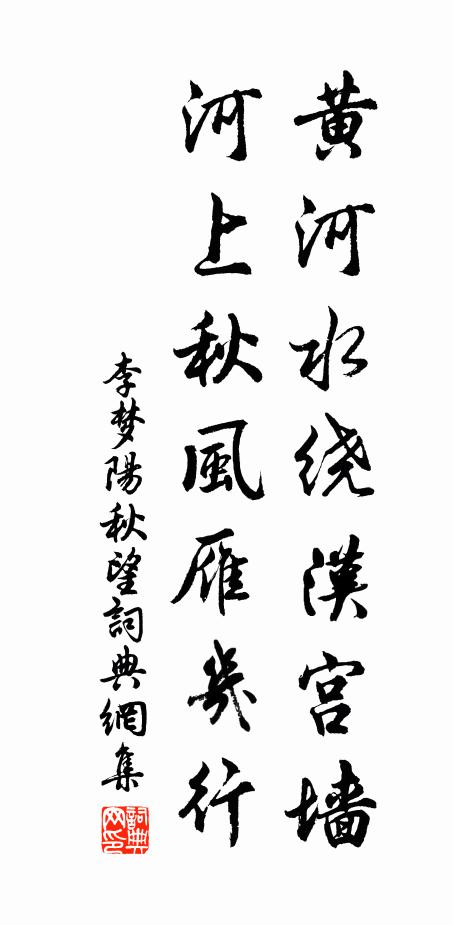 黄河水绕漢宫墙
河上秋風雁幾行
李梦陽秋望詞典網集
詞典网印